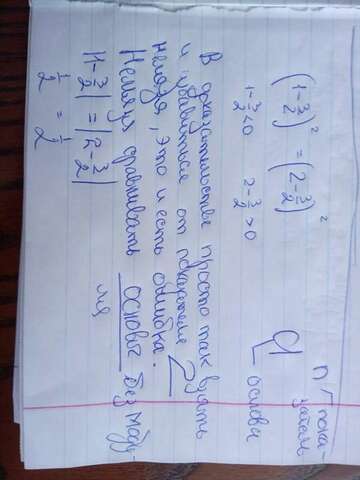 (1-3/2)² = (2-3/2)²
1-3/2<0 2-3/2>0
a^п
п/ пока-
затель
основа
В доказательстве просто так взять
и избавиться от показателя 2
нельзя, это и есть ошибка.
Нельзя сравнивать основы без моду
ля
|1-3/2| = |2-3/2|
1/2 = 1/2